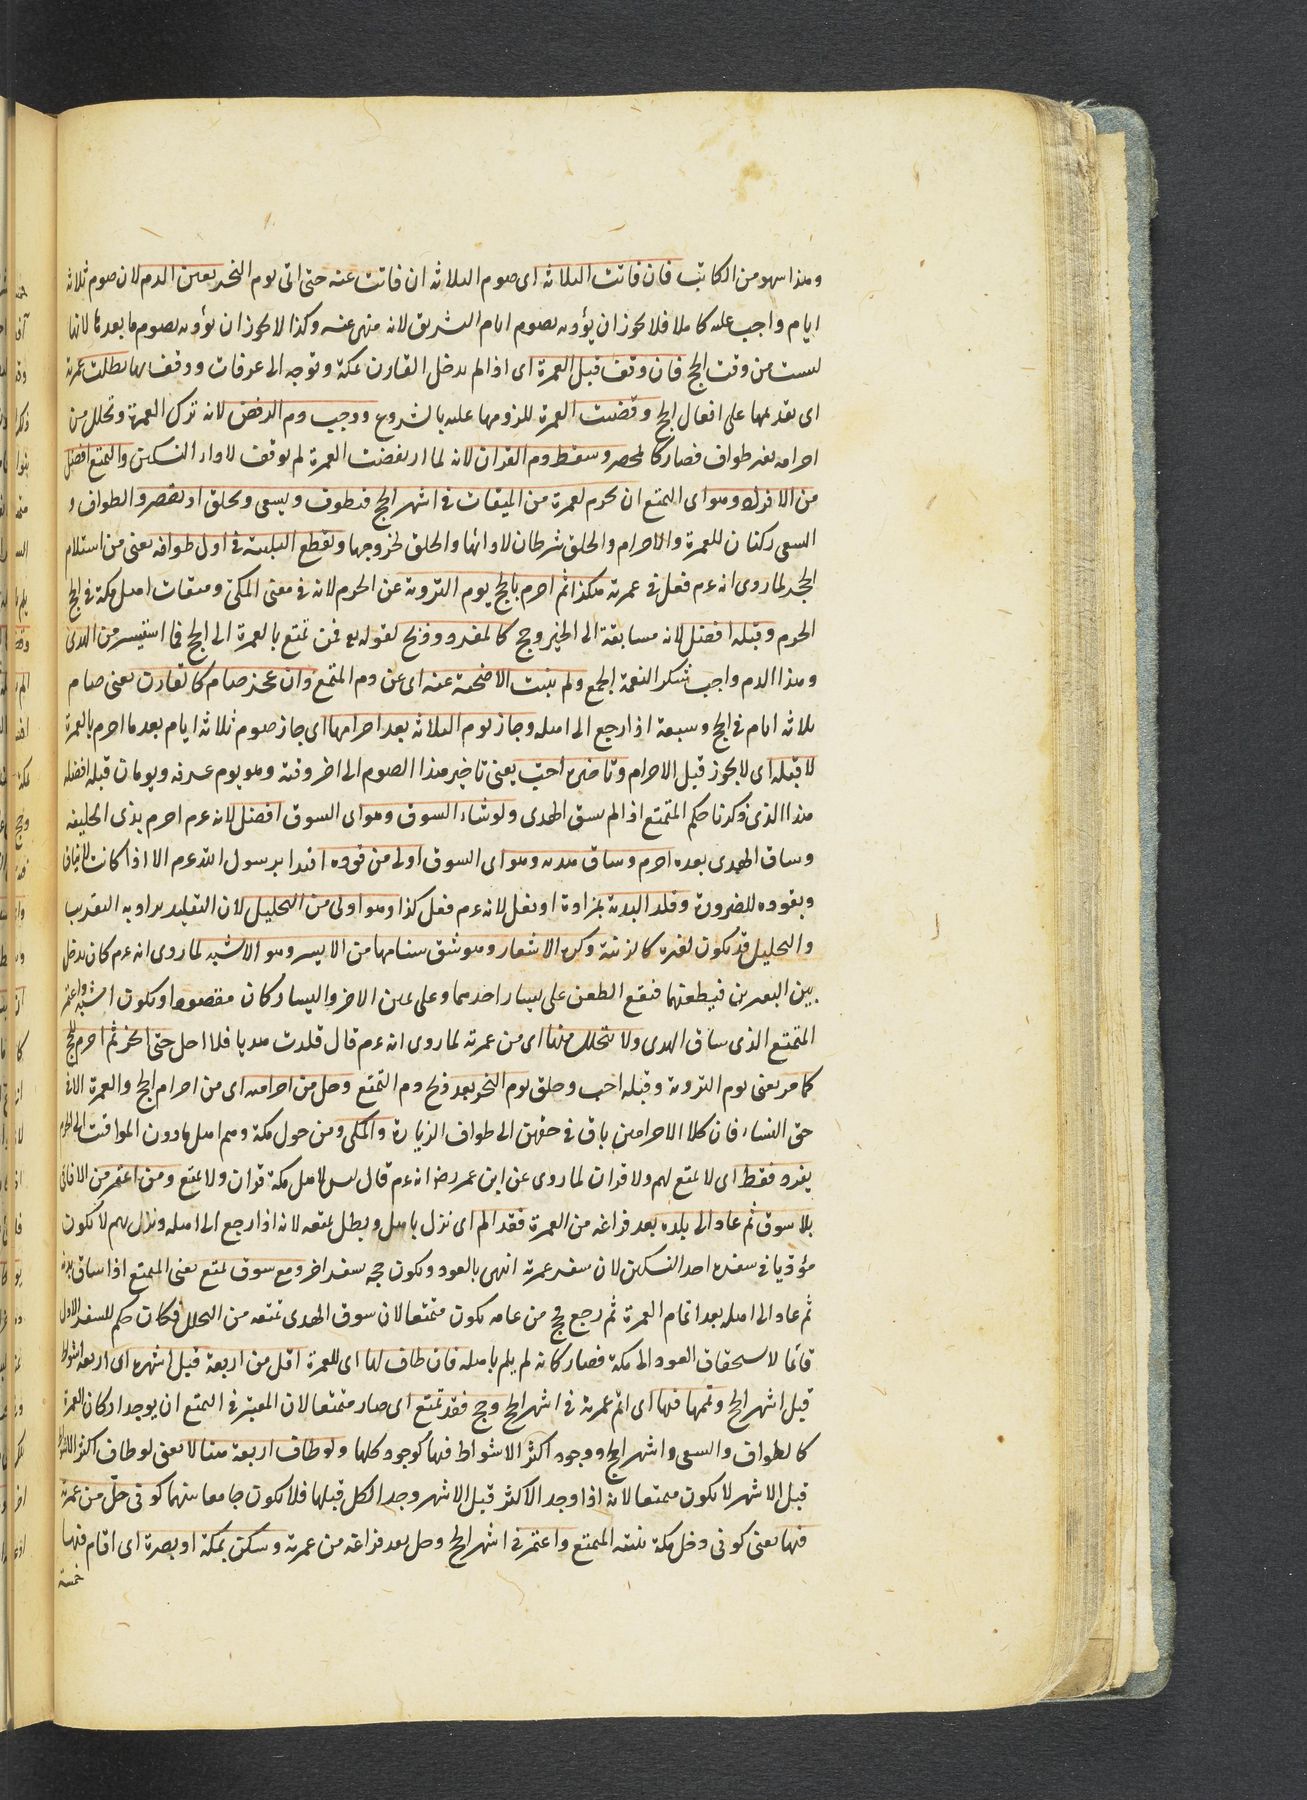 وهذا سهو من الكاتب فان فاتت الثلاثة اى صوم الثلاثة ان فاتت عنه حتى اتى يوم النحر تعين الدم لان صوم ثلاثة
ايام واجب عليه كاملا فلا يجوز ان يؤديه بصوم ايام التشريق لانه منهى عنه وكذا لا يجوز ان يؤديه بصوم ما بعدها لانها
ليست من وقت الحج فان وقف قبل العمرة اى اذا لم يدخل القارن بمكة وتوجه الى عرفات ووقف بها بطلت عمرته
اى بقدمها على افعال الحج وقضيت العمرة للزومها عليه بالشروع ووجب دم الرفض لانه ترك العمرة وتحلل من
احرامه بغير طواف فصار كالمحصر وسقط دم القران لانه لما ارتفضت العمرة لم يوفق لاداء النسكين والتمتع افضل
من الافراد وهو اى التمتع ان يحرم لعمرة من الميقات فى اشهر الحج فيطوف ويسعى ويحلق او يقصر والطواف و
السعى ركنان للعمرة والاحرام والحلق شرطان لادائها والحلق لخروجها ويقطع التلبية فى اول طوافه يعنى من استلام
الحجر لما روى انه عم فعل فى عمرته هكذا ثم احرم بالحج يوم التروية عن الحرم لانه فى معنى المكى وميقات اهل مكة فى الحج
الحرم وقبله افضل لانه مسابقة الى الخير وحج كالمفرد وذبح لقوله تع فمن تمتع بالعمرة الى الحج فما استيسر من الهدى
وهذا الدم واجب شكر النعمة الجمع ولم ينب الاضحية عنه اى عن دم المتمتع وان عجز صام كالقارن يعنى صام
ثلاثة ايام فى الحج وسبعة اذا رجع الى اهله وجاز يوم الثلاثة بعد احرامها اى جاز صوم ثلاثة ايام بعد ما احرم بالعمرة
لا قبله اى لا يجوز قبل الاحرام وتاخيره احب يعنى تاخير هذا الصوم الى اخر وقته وهو يوم عرفة ويومان قبله افضله
هذا الذى ذكرنا حكم المتمتع اذا لم يسق الهدى ولو شاء السوق وهو اى السوق افضل لانه عم احرم بذى الحليفة
وساق الهدى بعده احرم وساق هديه وهو اى السوق اولى من قوده اقتداء برسول الله عم الا اذا كانت لا ينساق
ويقوده للضرورة وقلد البدنة بمزادة او نعل لانه عم فعل كذا وهو اولى من التجليل لان التقليد يراد به التقريب
والتجليل قد يكون لغيره كالزينة وكره الاشعار وهو شق سنامها من الايسر وهو الاشبه لما روى انه عم كان يدخل
بين البعيرين فيطعنهما فيقع الطعن على يسار احدهما وعلى يمين الاخر واليسار كان مقصودا ويكون اشبه واعتمر
المتمتع الذى ساق الهدى ولا يتحلل منها اى من عمرته لما روى انه عم قال قلدت هديا فلا احل حتى انحر ثم احرم للحج
كما مر يعنى يوم التروية وقبله احب وحلق يوم النحر بعد ذبح دم التمتع وحل من احراميه اى من احرام الحج والعمرة الا فى
حق النساء فان كلا الاحرامين باق فى حقهن الى طواف الزيارة والمكى ومن حول مكة وهم اهل ما دون المواقيت الى الحرم
يفرد فقط اى لا تمتع لهم ولا قران لما روى عن ابن عمر رض انه عم قال ليس لاهل مكة قران ولا تمتع ومن اعتمر من الافاقى
بلا سوق ثم عاد الى بلده بعد فراغه من العمرة فقد الم اى نزل باهل وبطل تمتعه لانه اذا رجع الى اهله ونزل بهم لا يكون
مؤديا فى سفره احد النسكين لان سفر عمرته انتهى بالعود ويكون حجه سفر اخر ومع سوق تمتع يعنى المتمتع اذا ساق هديه
ثم عاد الى اهله بعد اتمام العمرة ثم رجع وحج من عامه يكون متمتعا لان سوق الهدى تمنعه من التحلل فكان حكم السفر الاول
قائما لاستحقاق العود الى مكة فصار كانه لم يلم باهله فان طاف لها اى للعمرة اقل من اربعة قبل اشهره اى اربعة اشواط
قبل اشهر الحج وتممها فيها اى اتم عمرته فى اشهر الحج وحج فقد تمتع اى صار متمتعا لان المعتبر فى التمتع ان يوجد اركان العمرة
كالطواف والسعى و اشهر الحج ووجود اكثر الاشواط فيها كوجود كلها ولو طاف اربعة هنا لا يعنى لو طاف اكثر الاشواط
قبل الاشهر لا يكون متمتعا لانه اذا وجد الاكثر قبل الاشهر وجد الكل قبلها فلا يكون جامعا بينهما كوفى حل من عمرته
فيها يعنى كوفى دخل مكة بنية المتمتع واعتمر فى اشهر الحج وحل بعد فراغه من عمرته وسكن بمكة او بصرة اى اقام فيها
خمسة